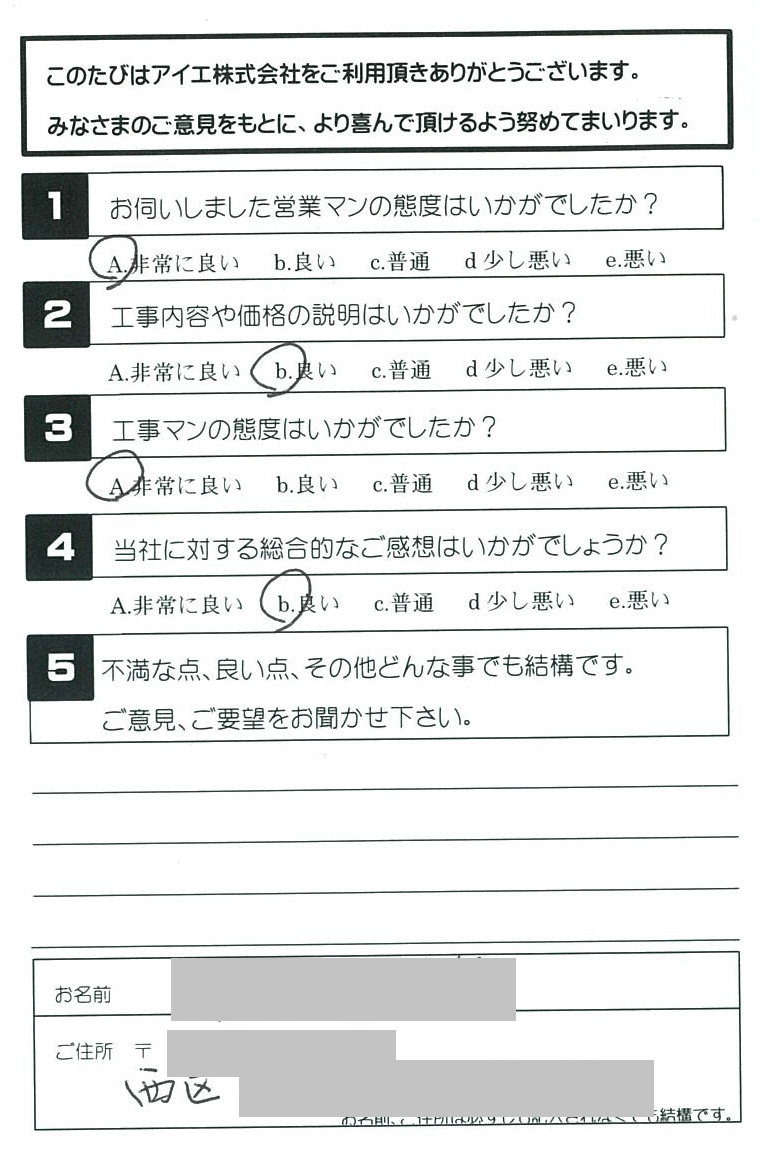 このたびはアイエ株式会社をご利用頂きありがとうございます。
みなさまのご意見をもとに、より喜んで頂けるよう努めてまいります。
1 お伺いしました営業マンの態度はいかがでしたか？
A.非常に良い b.良い c.普通 d 少し悪い e.悪い
2 工事内容や価格の説明はいかがでしたか？
A.非常に良い b.良い c.普通 d 少し悪い e.悪い
3 工事マンの態度はいかがでしたか？
A.非常に良い b.良い c.普通 d 少し悪い e.悪い
4 当社に対する総合的なご感想はいかがでしょうか？
A.非常に良い b.良い c.普通 d 少し悪い e.悪い
5 不満な点、良い点、その他どんな事でも結構です。
ご意見、ご要望をお聞かせ下さい。
お名前
ご住所 〒
西区
お名前、ご住所は必ずしも記入されなくても結構です。